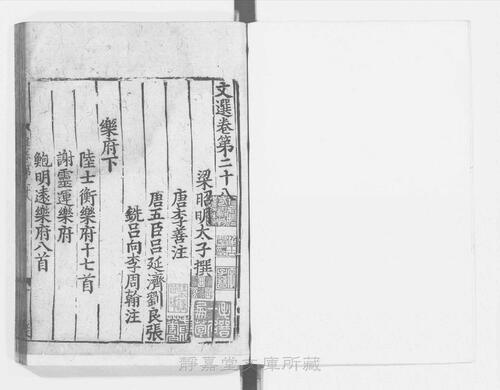 文選卷第二十八
梁昭明太子撰
唐李善注
唐五臣呂延濟劉良張
銑呂向李周翰注
樂府下
陸士衡樂府十七首
謝靈運樂府
鮑明遠樂府八首
靜嘉堂文庫所藏